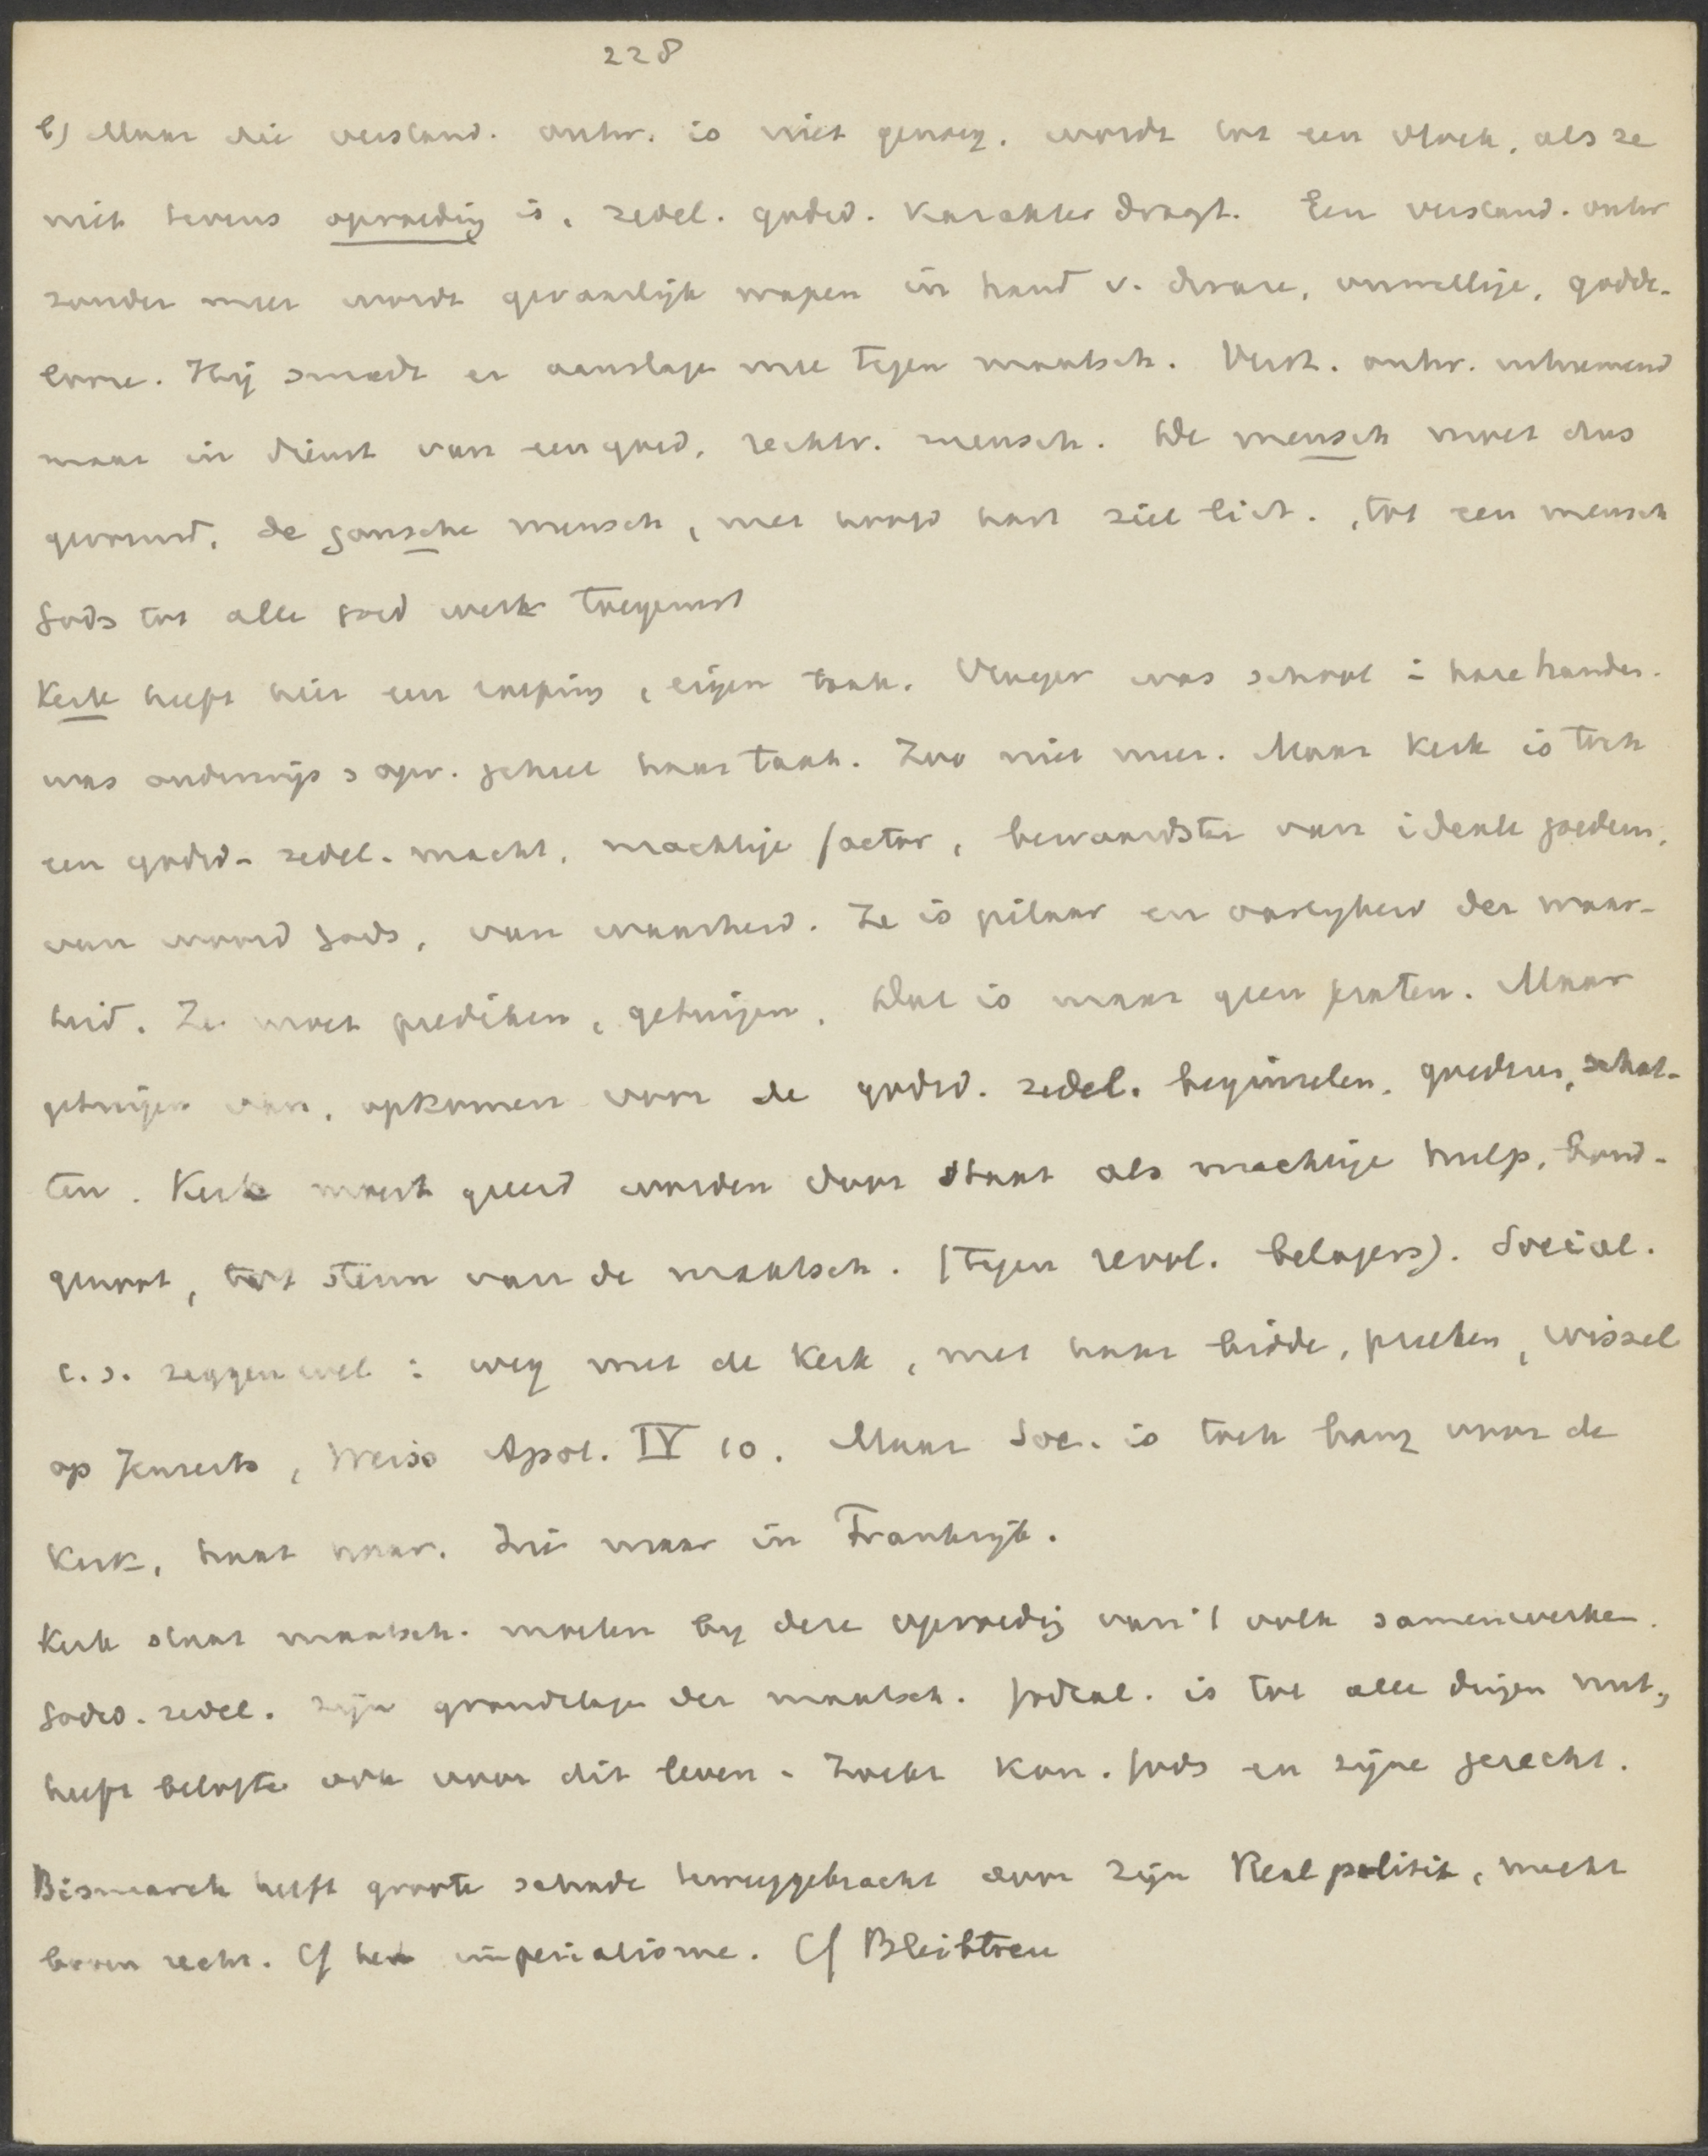 228
b) Maar die verstand. ontw. is niet genoeg. wordt tot een vloek, als ze
niet tevens opvoeding is, zedel. godsd. karakter draagt. Een verstand. ontw
zonder meer wordt gevaarlijk wapen in hand v. dwaze, onwettige, godde-
looze. Hij smeedt er aanslagen mee tegen maatsch. Verst. ontw. uitnemend
maar in dienst van een goed, rechtv. mensch. De mensch moet dus
gevormd, de gansche mensch, met hoofd hart ziel lich. , tot een mensch
Gods tot alle goed werk toegerust
Kerk heeft hier een roeping, eigen taak. Vroeger was school i hare handen.
was onderwijs & opv. geheel haar taak. Zoo niet meer. Maar Kerk is toch
een godsd- zedel. macht, machtige factor, bewaarster van ideale goederen,
van woord Gods, van waarheid. Ze is pilaar en vastigheid der waar-
heid. Ze moet prediken, getuigen. Dat is maar geen praten. Maar
getuigen van, opkomen voor de godsd. zedel. beginselen, goederen, schat-
ten. Kerk moest geeerd worden door Staat als machtige hulp, bond-
genoot, tot steun van de maatsch. (tegen revol. belagers). Social.
c.s. zeggen wel : weg met de Kerk, met haar bidde, preeken, wissel
op Jenseits, Weiss Apol. IV 10. Maar Soc. is toch bang voor de
Kerk, haat haar. Zie maar in Frankrijk.
Kerk staat maatsch. moeten by deze opvoeding van 't volk samenwerken.
Godsd. zedel. zijn grondslagen der maatsch. Godzal. is tot alle dingen nut,
heeft belofte ook voor dit leven - Zoekt Kon. Gods en zijne gerecht.
Bismarck heeft groote schade teweeggebracht door zijn Realpolitik, macht
boven recht. Cf het imperialisme. Cf Bleibtreu